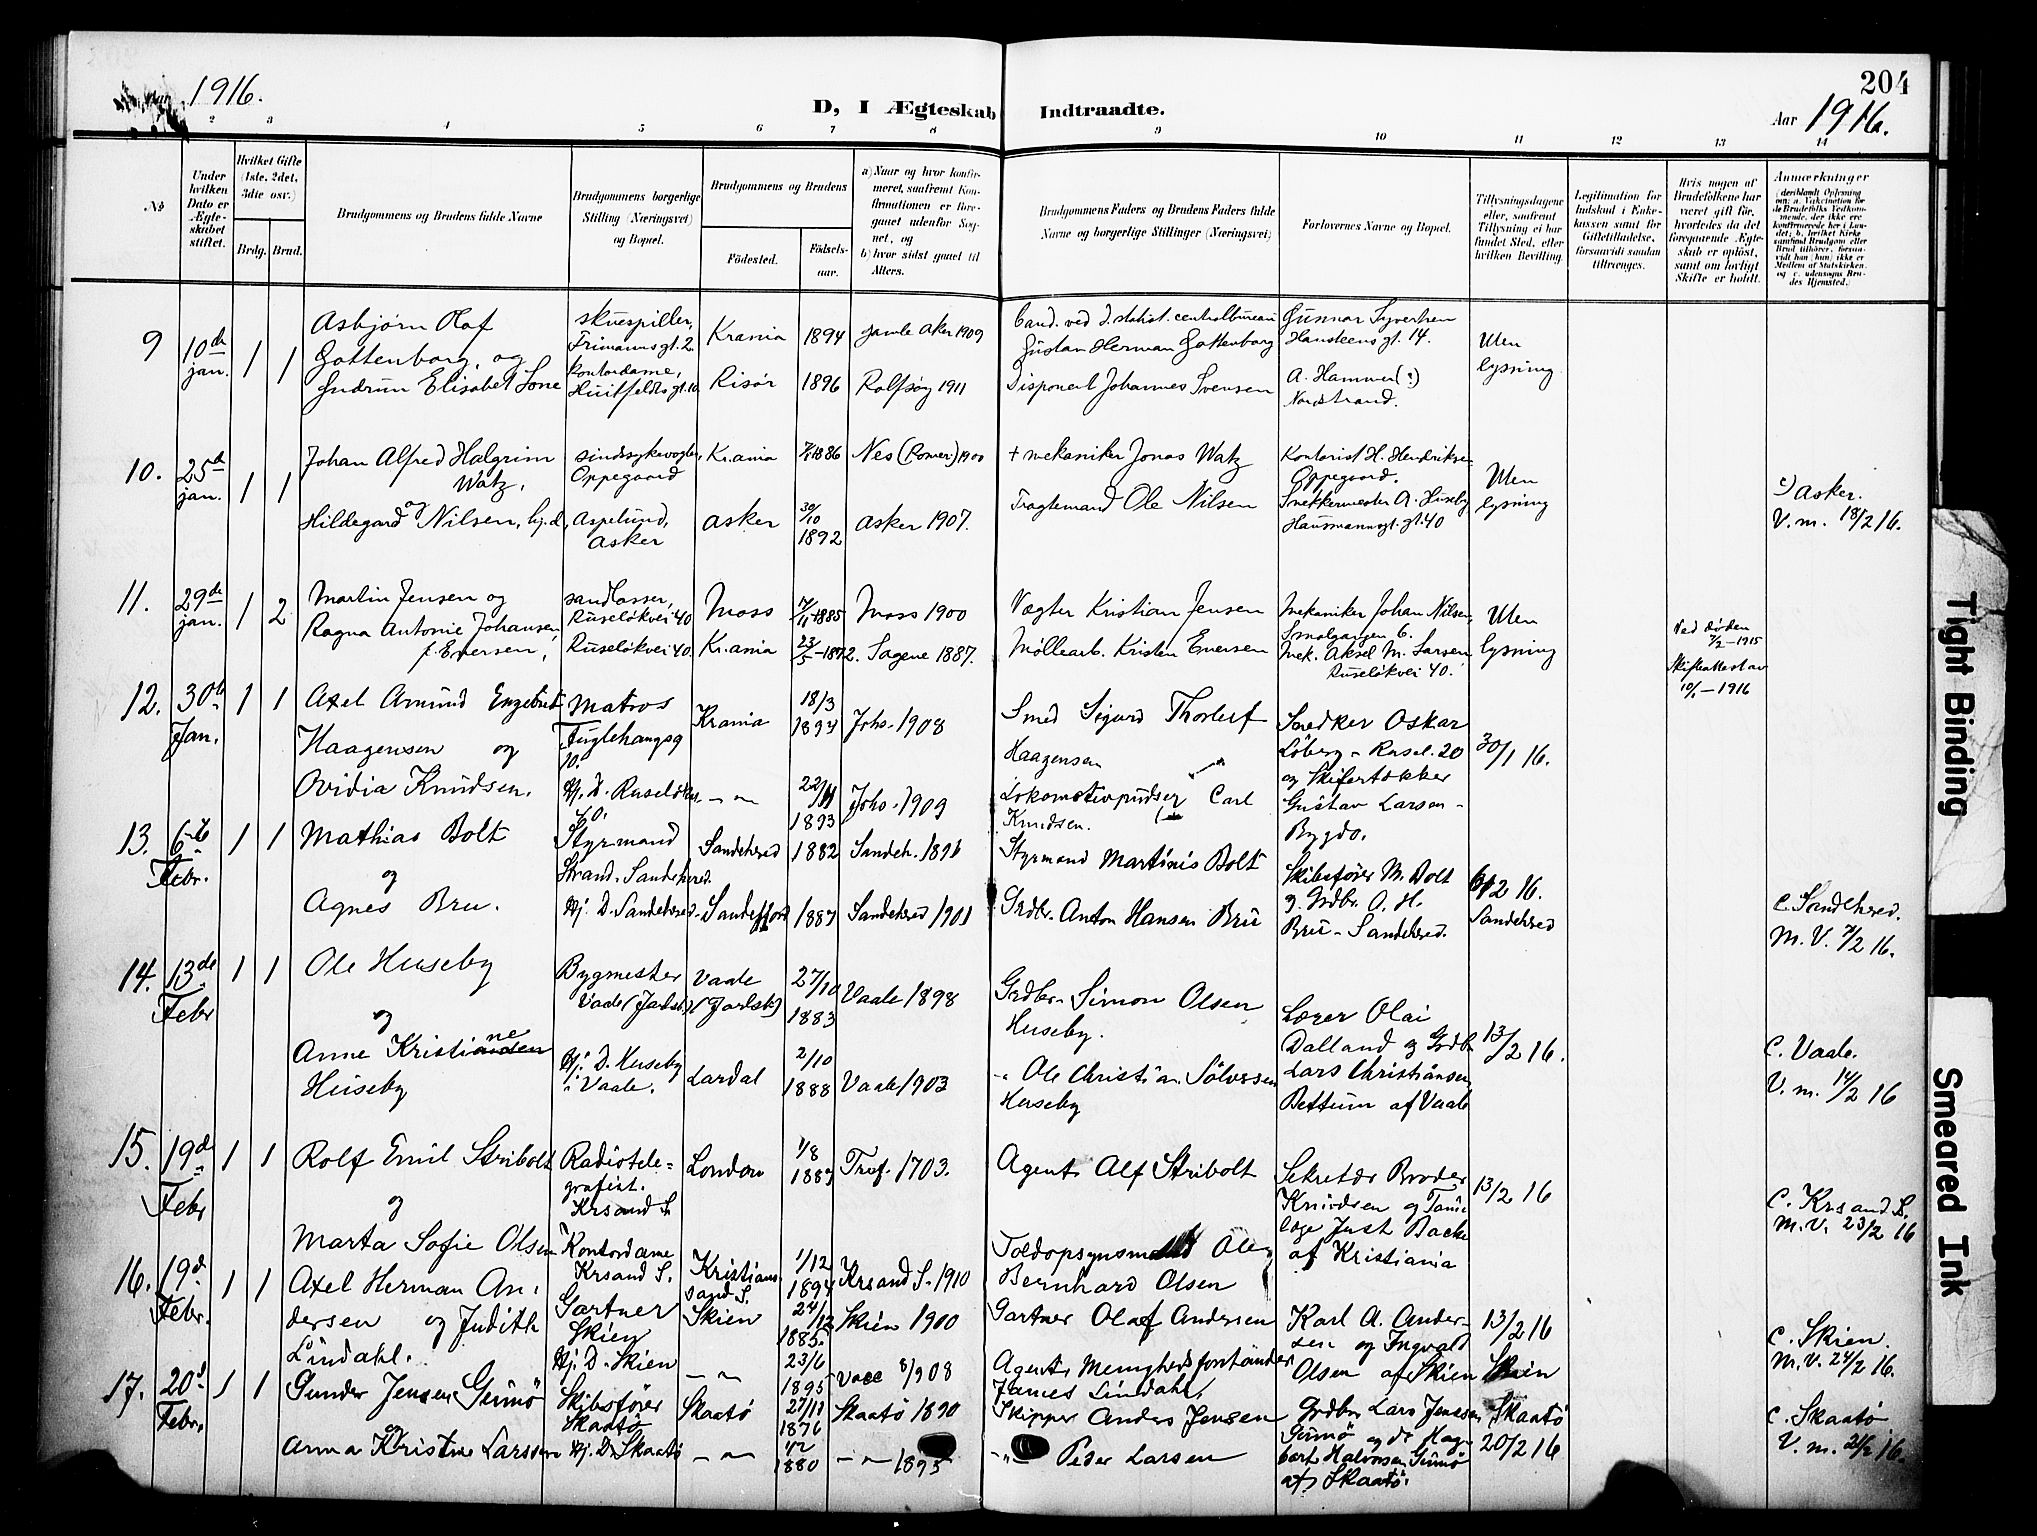 204
Aar 1916.
D, I Ægteskab Indtraadte.
Aar 1916.
2 3 4 5 6 7 8 9 10 11 12 13 14
№
Under hvilken Dato er Ægteskabet stiftet.
Hvilket Gifte (1ste, 2det, 3die osv.)
Brdg. Brud.
Brudgommens og Brudens fulde Navne
Brudgommens borgerlige Stilling (Næringsvei) og Bopæl.
Brudgommens og Brudens
Fødested.
Fødselsaar.
a) Naar og hvor konfirmeret, saafremt Konfirmationen er foregaaet udenfor Sognet, og
b) hvor sidst gaaet til Alters.
Brudgommens Faders og Brudens Faders fulde Navne og borgerlige Stillinger (Næringsvei)
Forlovernes Navne og Bopæl.
Tillysningsdagene eller, saafremt Tillysning ei har fundet Sted, efter hvilken Bevilling.
Legitimation for Indskud i Enkekassen samt for Giftetilladelse, forsaavidt saadan tiltrænges.
Hvis nogen af Brudefolkene har været gift før, hvorledes da det foregaaende Ægteskab er opløst, samt om lovligt Skifte er holdt.
Anmærkninger
9 10de jan. 1 1
Asbjørn Olaf Gottenborg, og
skuespiller, Frimannsgt. 2
Krania 1894 Gamle Aker 1909
Cand. ved d. statist. centralbureau Gustav Herman Gottenborg
Gunnar Syvertsen Hansteensgt. 14.
Uten lysning
Gudrun Elisabet Lone
Kontordame, Huitfeldtsgt. 10
Risør 1896 Rolfsøy 1911
Disponent Johannes Svensen
A. Hammer (?) Nordstrand.
10. 25de jan. 1 1
Johan Alfred Halgrim Watz, og
sindssykevogter, Oppegaard
Kr.ania 1886 Nes (Romer) 1900
+ mekaniker Jonas Watz
Kontorist H. Hendriksen Oppegaard.
Uten lysning
Hildegard Nilsen, hj.d.,
Aspelund, Asker
Asker 30/10 1892 Asker 1907.
Ole Nilsen
Snekkermester A. Huseby Hausmannsgt. 40
c) Asker.
V. m. 18/2 16.
11. 29de jan. 1 2
Martin Jensen og
sandlosser, Ruseløkvei 40
Moss 1885 Moss 1900
Vægter Kristian Jensen
Mekaniker Johan Nilsen, Smalgangen 6.
Uten lysning
Ragna Antonie Johansen, f. Evensen,
Ruseløkvei 40.
Kr.ania 23/5-1872. Sagene 1887.
Møllearb. Kristen Evensen
Mek. Aksel M. Larsen, Ruseløkvei 40.
Ved døden 7/2-1915
Skifteattest av 10/1-1916
12. 30te Jan. 1 1
Axel Amund Engebret Haagensen og
Matros Fuglehaugsg 10.
Krania 18/3 1894 Johs. 1908
Smed Sigurd Thorleif Haagensen
Snedker Oskar Løberg - Rusel. 20 og Skifertækker Gustav Larsen - Bygdø.
30/1 16.
Ovidia Knudsen.
Hj. D. Ruseløkv. 70.
- " - 22/11 1893 Johs. 1909
Lokomotivpudser Carl Knudsen.
13. 6te Febr. 1 1
Mathias Bolt og
Styrmand Strand - Sandeherred.
Sandeherred 1882 Sandeh. 1896
Styrmand Martinis Bolt
Skibsfører M. Bolt og Grdbr. A. H. Bru - Sandeherred.
6/2 16. Sandeherred
Agnes Bru.
Hj. D. Sandeherred
Sandefjord 1887 Sandeherred 1901
Grdbr. Anton Hansen Bru
c. Sandeherred.
M. V. 7/2 16.
14. 13de Febr 1 1
Ole Huseby og
Bygmester Vaale (Jarlsb.)
Vaale (Jarlsb.) 27/10 1883 Vaale 1898
Grdbr. Simon Olsen Huseby.
Lærer Olai Dalland og Grdbr. Lars Christiansen Bettum af Vaale
13/2 16.
Anne Kristiane Huseby
Hj. D. Huseby i Vaale.
Lardal 2/10 1888 Vaale 1903
- " Ole Christian Sölversen Huseby
C. Vaale.
V. m. 14/2 16
15. 19de Febr 1 1
Rolf Emil Stribolt og
Radiotelegrafist. Krsand S.
London 1/8 1887 Tref. 1703.
Agent Alf Stribolt
Sekretær Broder Knudsen og Tandlæge Just Backe af Kristiania
13/2 16
C. Krsand S.
M. V. 23/2 16
Marta Sofie Olsen
Kontordame Krsand S.
Kristiansand S. 1/12 1894 Krsand S. 1910
Toldopsynsmand Ole Bernhard Olsen
16. 19d. Febr. 1 1
Axel Herman Andersen og Judith Lindahl.
Gartner Skien
Skien 24/12 1885. Skien 1900
Gartner Olaf Andersen
Karl A. Andersen og Ingvald Olsen af Skien
13/2 16 Skien
Hj. D. Skien
- " - 23/6 1895 8/908
Agent, Menighedsforstander James Lindahl,
C. Skien.
M. V. 24/2 16.
17. 20d. Febr. 1 1
Gunder Jensen Gumö og
Skibsfører Skaatö
Skaatö 27/11 1876 Skaatö 1890
Skipper Anders Jensen
Grdbr. Lars Jensen Gumö og do Hagbart Halvorsen Gumö af Skaatö.
Skaatö 20/2 16
Anna Kristine Larsen
Hj. D. Skaatö
- " - 1880 - " - 1895
- " - Peder Larsen
C. Skaatö
V. m. 21/2 16.
Tight Binding
Smeared Ink